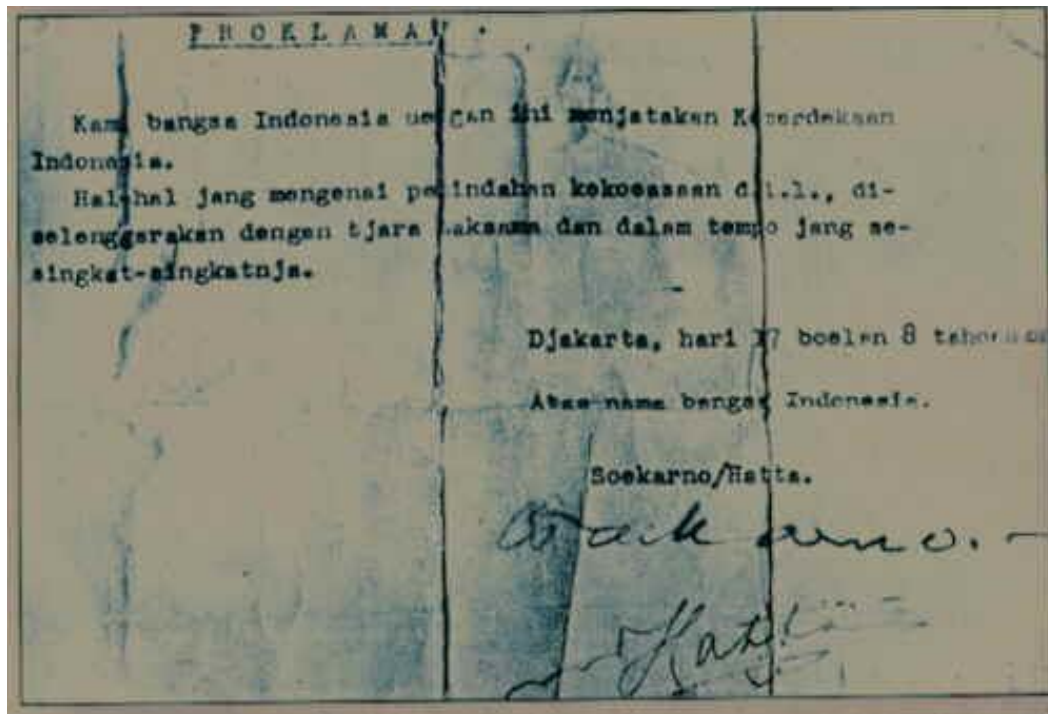 P R O K L A M A S I .
Kami bangsa Indonesia dengan ini menjatakan Kemerdekaan
Indonesia.
Hal-hal jang mengenai pemindahan kekoeasaan d.l.l., di-
selenggarakan dengan tjara saksama dan dalam tempo jang se-
singkat-singkatnja.
Djakarta, hari 17 boelan 8 tahoen
Atas nama bangsa Indonesia.
Soekarno/Hatta.
Soekarno.
Hatta